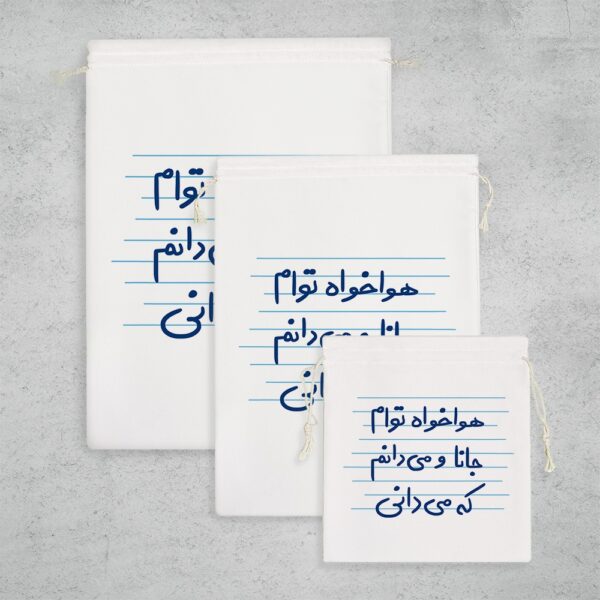 توام
می‌دانم
هواخواه توام
جانا و می‌دانم
هواخواه توام
جانا و می‌دانم
که می‌دانی